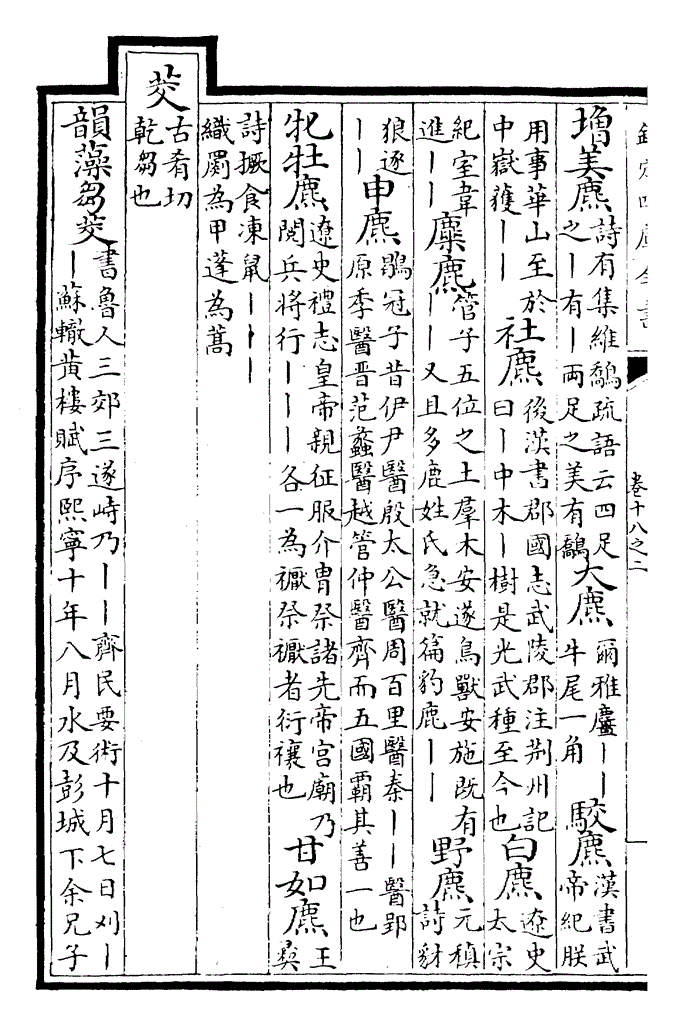 欽定四庫全書
卷十八之二
增美麃詩有集維鷮疏語云四足之丨有丨兩足之美有鷮大麃爾雅麠丨丨牛尾一角駮麃漢書武帝紀朕
用事華山至於中嶽獲丨丨社麃後漢書郡國志武陵郡注荆州記曰丨中木丨樹是光武種至今也白麃遼史太宗
紀室韋進丨丨麋麃管子五位之土羣木安遂鳥獸安施既有丨丨又且多鹿姓氏急就篇豹麃丨丨野麃元稹詩豺
狼逐丨丨申麃鶡冠子昔伊尹醫殷太公醫周百里醫秦丨丨醫郢原季醫晋范蠡醫越管仲醫齊而五國霸其善一也
牝牡麃遼史禮志皇帝親征服介胄祭諸先帝宫廟乃閲兵將行丨丨丨各一為祭者衍禳也甘如麃王
詩撅食凍鼠丨丨丨織罽為甲蓬為蒿
茭古肴切乾芻也
韻藻芻茭書魯人三郊三遂峙乃丨丨齊民要術十月七日刈丨丨蘇轍黄樓賦序熙寧十年八月水及彭城下余兄子